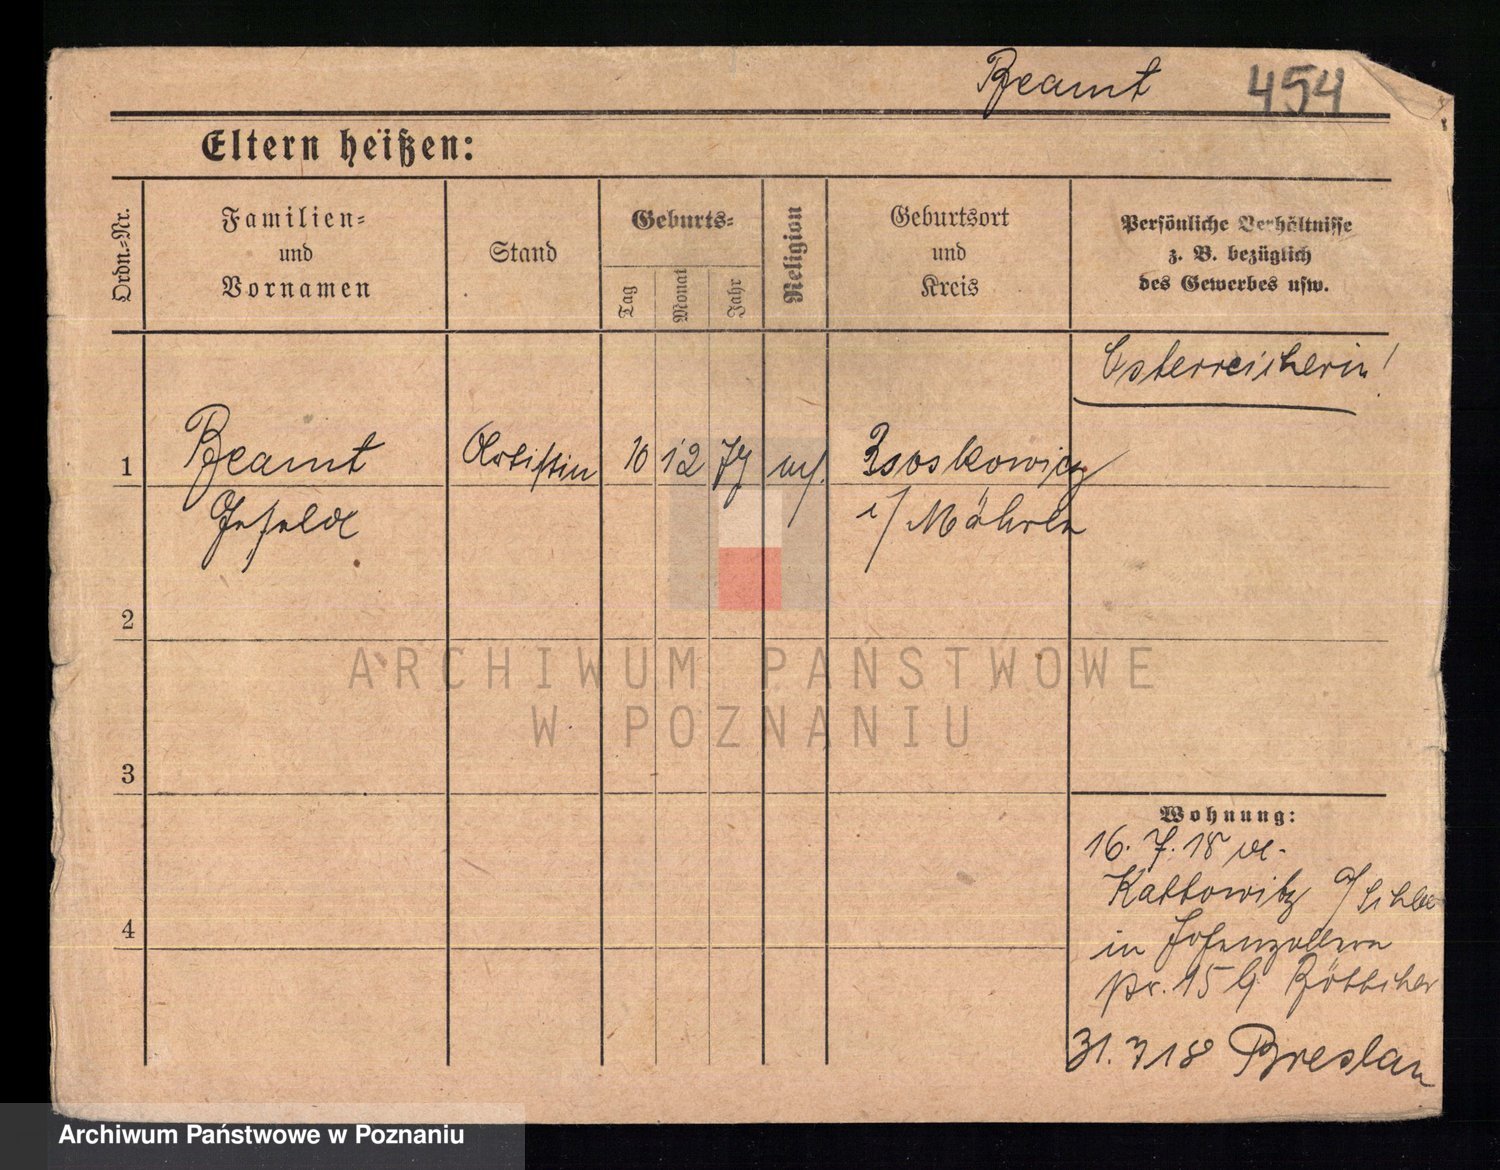 Beamt 454
Eltern heißen:
Ordn.-Nr.
Familien-
und
Vornamen
Stand
Geburts-
Tag
Monat
Jahr
Religion
Geburtsort
und
Kreis
Persönliche Verhältnisse
z. B. bezüglich
des Gewerbes usw.
Österreicherin!
1 Beamt Artistin 10 12 77
i/ Mähren
2
3
4
Wohnung:
16. 7. 18
Kattowitz
in Hohenzollern
15 Böttcher
31. 7 18 Breslau
ARCHIWUM PAŃSTWOWE
W POZNANIU
Archiwum Państwowe w Poznaniu